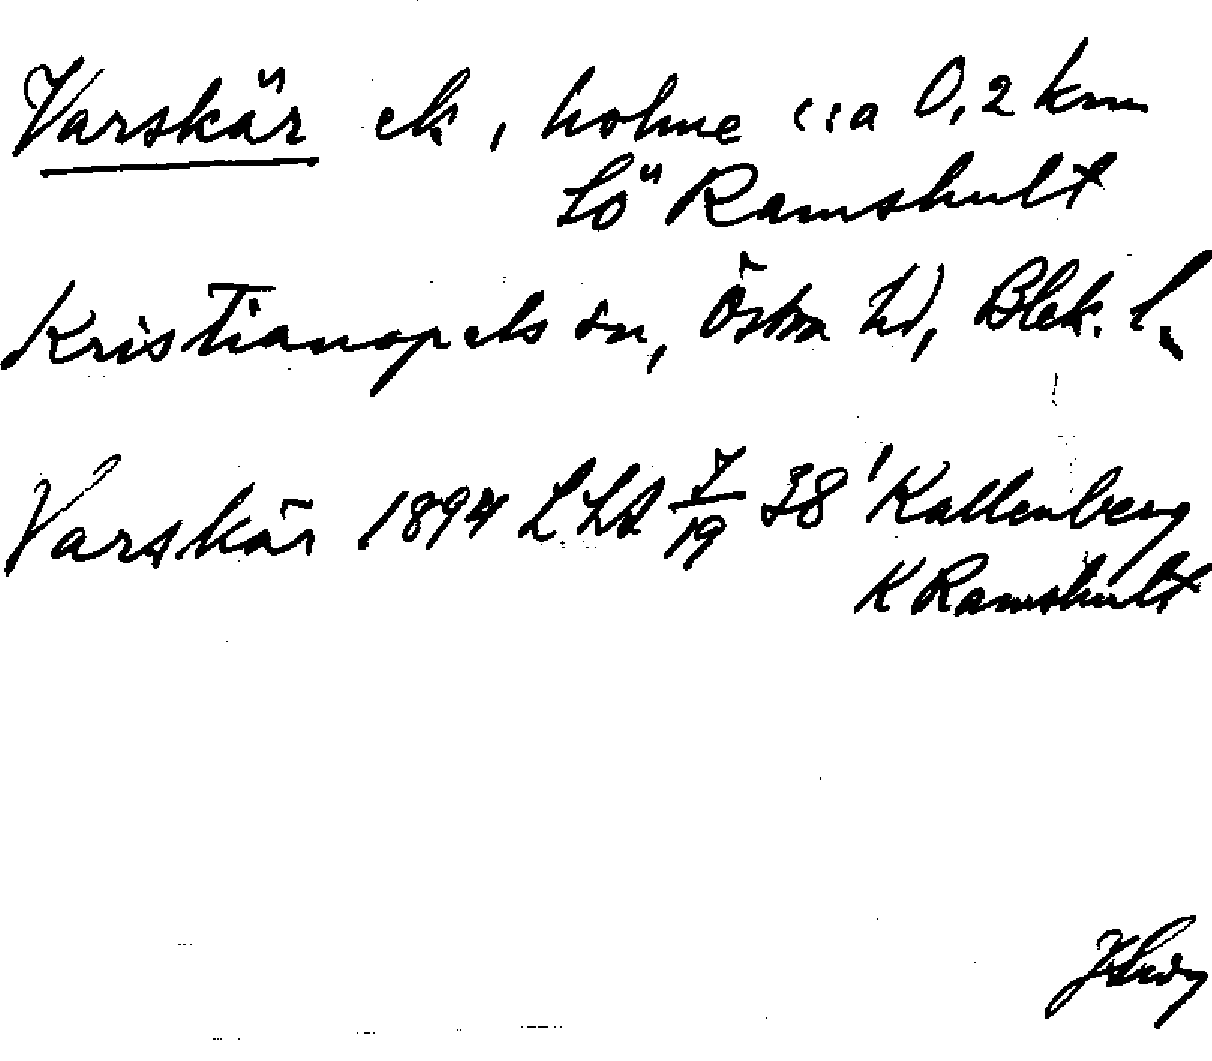 Varskär ek, holme cca 0,2 km
SÖ Ramshult
Kristianopels sn, Östra hd, Blek. l.
Varskär 1894 LSA 7/19 38 'Kallenberg
K Ramshult